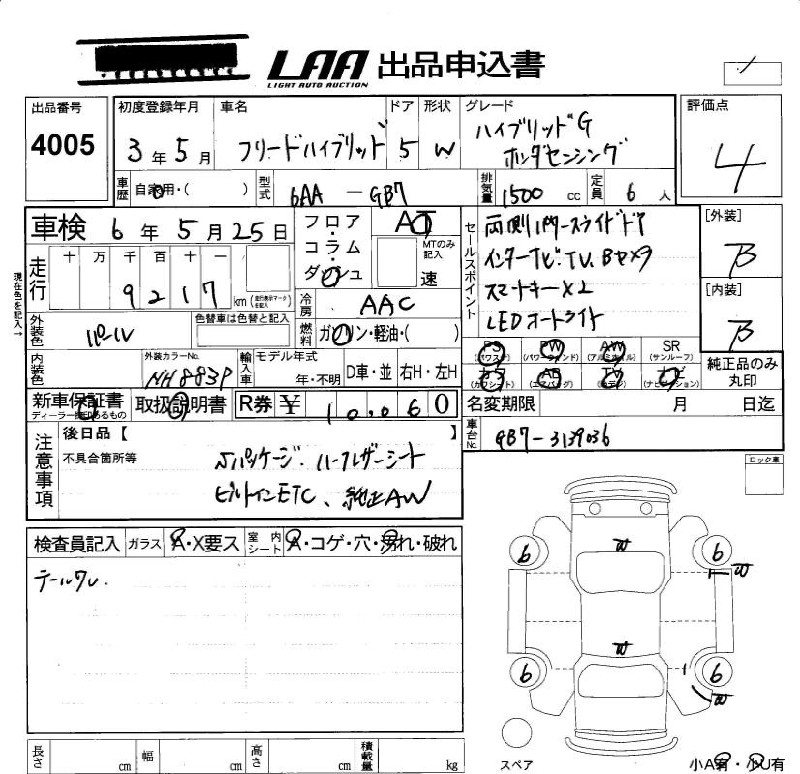 LAA 出品申込書
LIGHT AUTO AUCTION
出品番号 4005
初度登録年月 3年5月
車名 フリードハイブリッド
ドア 5
形状 W
グレード ハイブリッドG
ホンダセンシング
評価点 4
車歴 自家用・( )
型式 6AA - GB7
排気量 1500 cc
定員 6 人
車検 6年5月25日
フロア・コラム・ダッシュ
AT
MTのみ記入
速
セールスポイント
両側パワースライドドア
インターナビ・TV.Bカメラ
スマートキー×2
LEDオートライト
[外装] B
[内装] B
現在色を記入→
走行 十 万 千 百 十 一
9217 km (走行表示マークを記入)
冷房 AAC
外装色 パール
色替車は色替と記入
燃料 ガソリン・軽油・( )
PS (パワステ) PW (パワーウィンド) AW (アルミホイル) SR (サンルーフ)
カワ (カワシート) AB (エアバッグ) TV (テレビ) ナビ (ナビゲーション)
純正品のみ丸印
内装色
外装カラーNo. NH883P
輸入車 モデル年式 年・不明 D車・並 右H・左H
新車保証書
ディーラー捺印あるもの
取扱説明書
R券 ¥ 10,060
名変期限 月 日迄
車台No. GB7-3139036
注意事項
後日品【 】
不具合箇所等
Sパッケージ.ハーフレザーシート
ビルトインETC、純正AW
ロック車
検査員記入 ガラス A・X要ス 室内シート A・コゲ・穴・汚れ・破れ
テールワレ.
W
6 6
W
W
6 1 6
W
スペア
小A有・小U有
長さ cm 幅 cm 高さ cm 積載量 kg